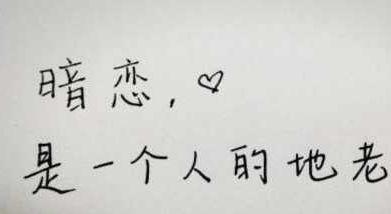 暗恋，♡
是一个人的地老